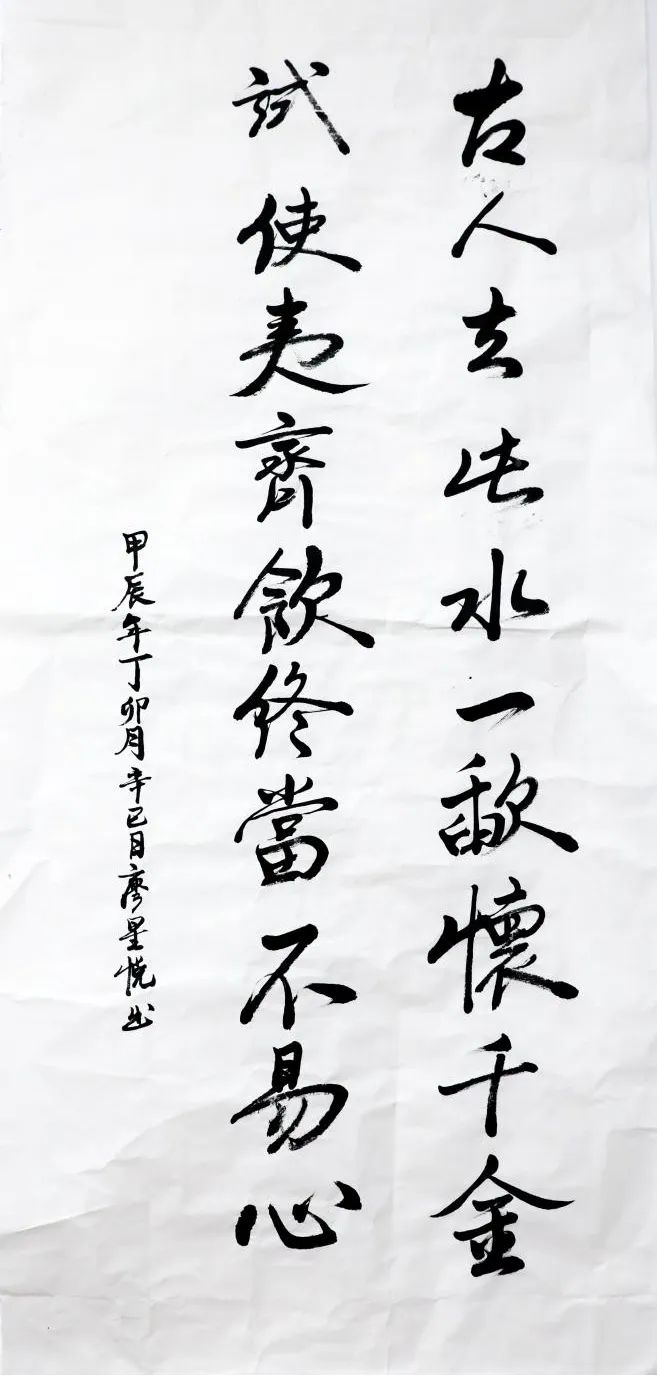 古人云此水一歃懷千金
試使夷齊飲終當不易心
甲辰年丁卯月辛巳日廖星悦书